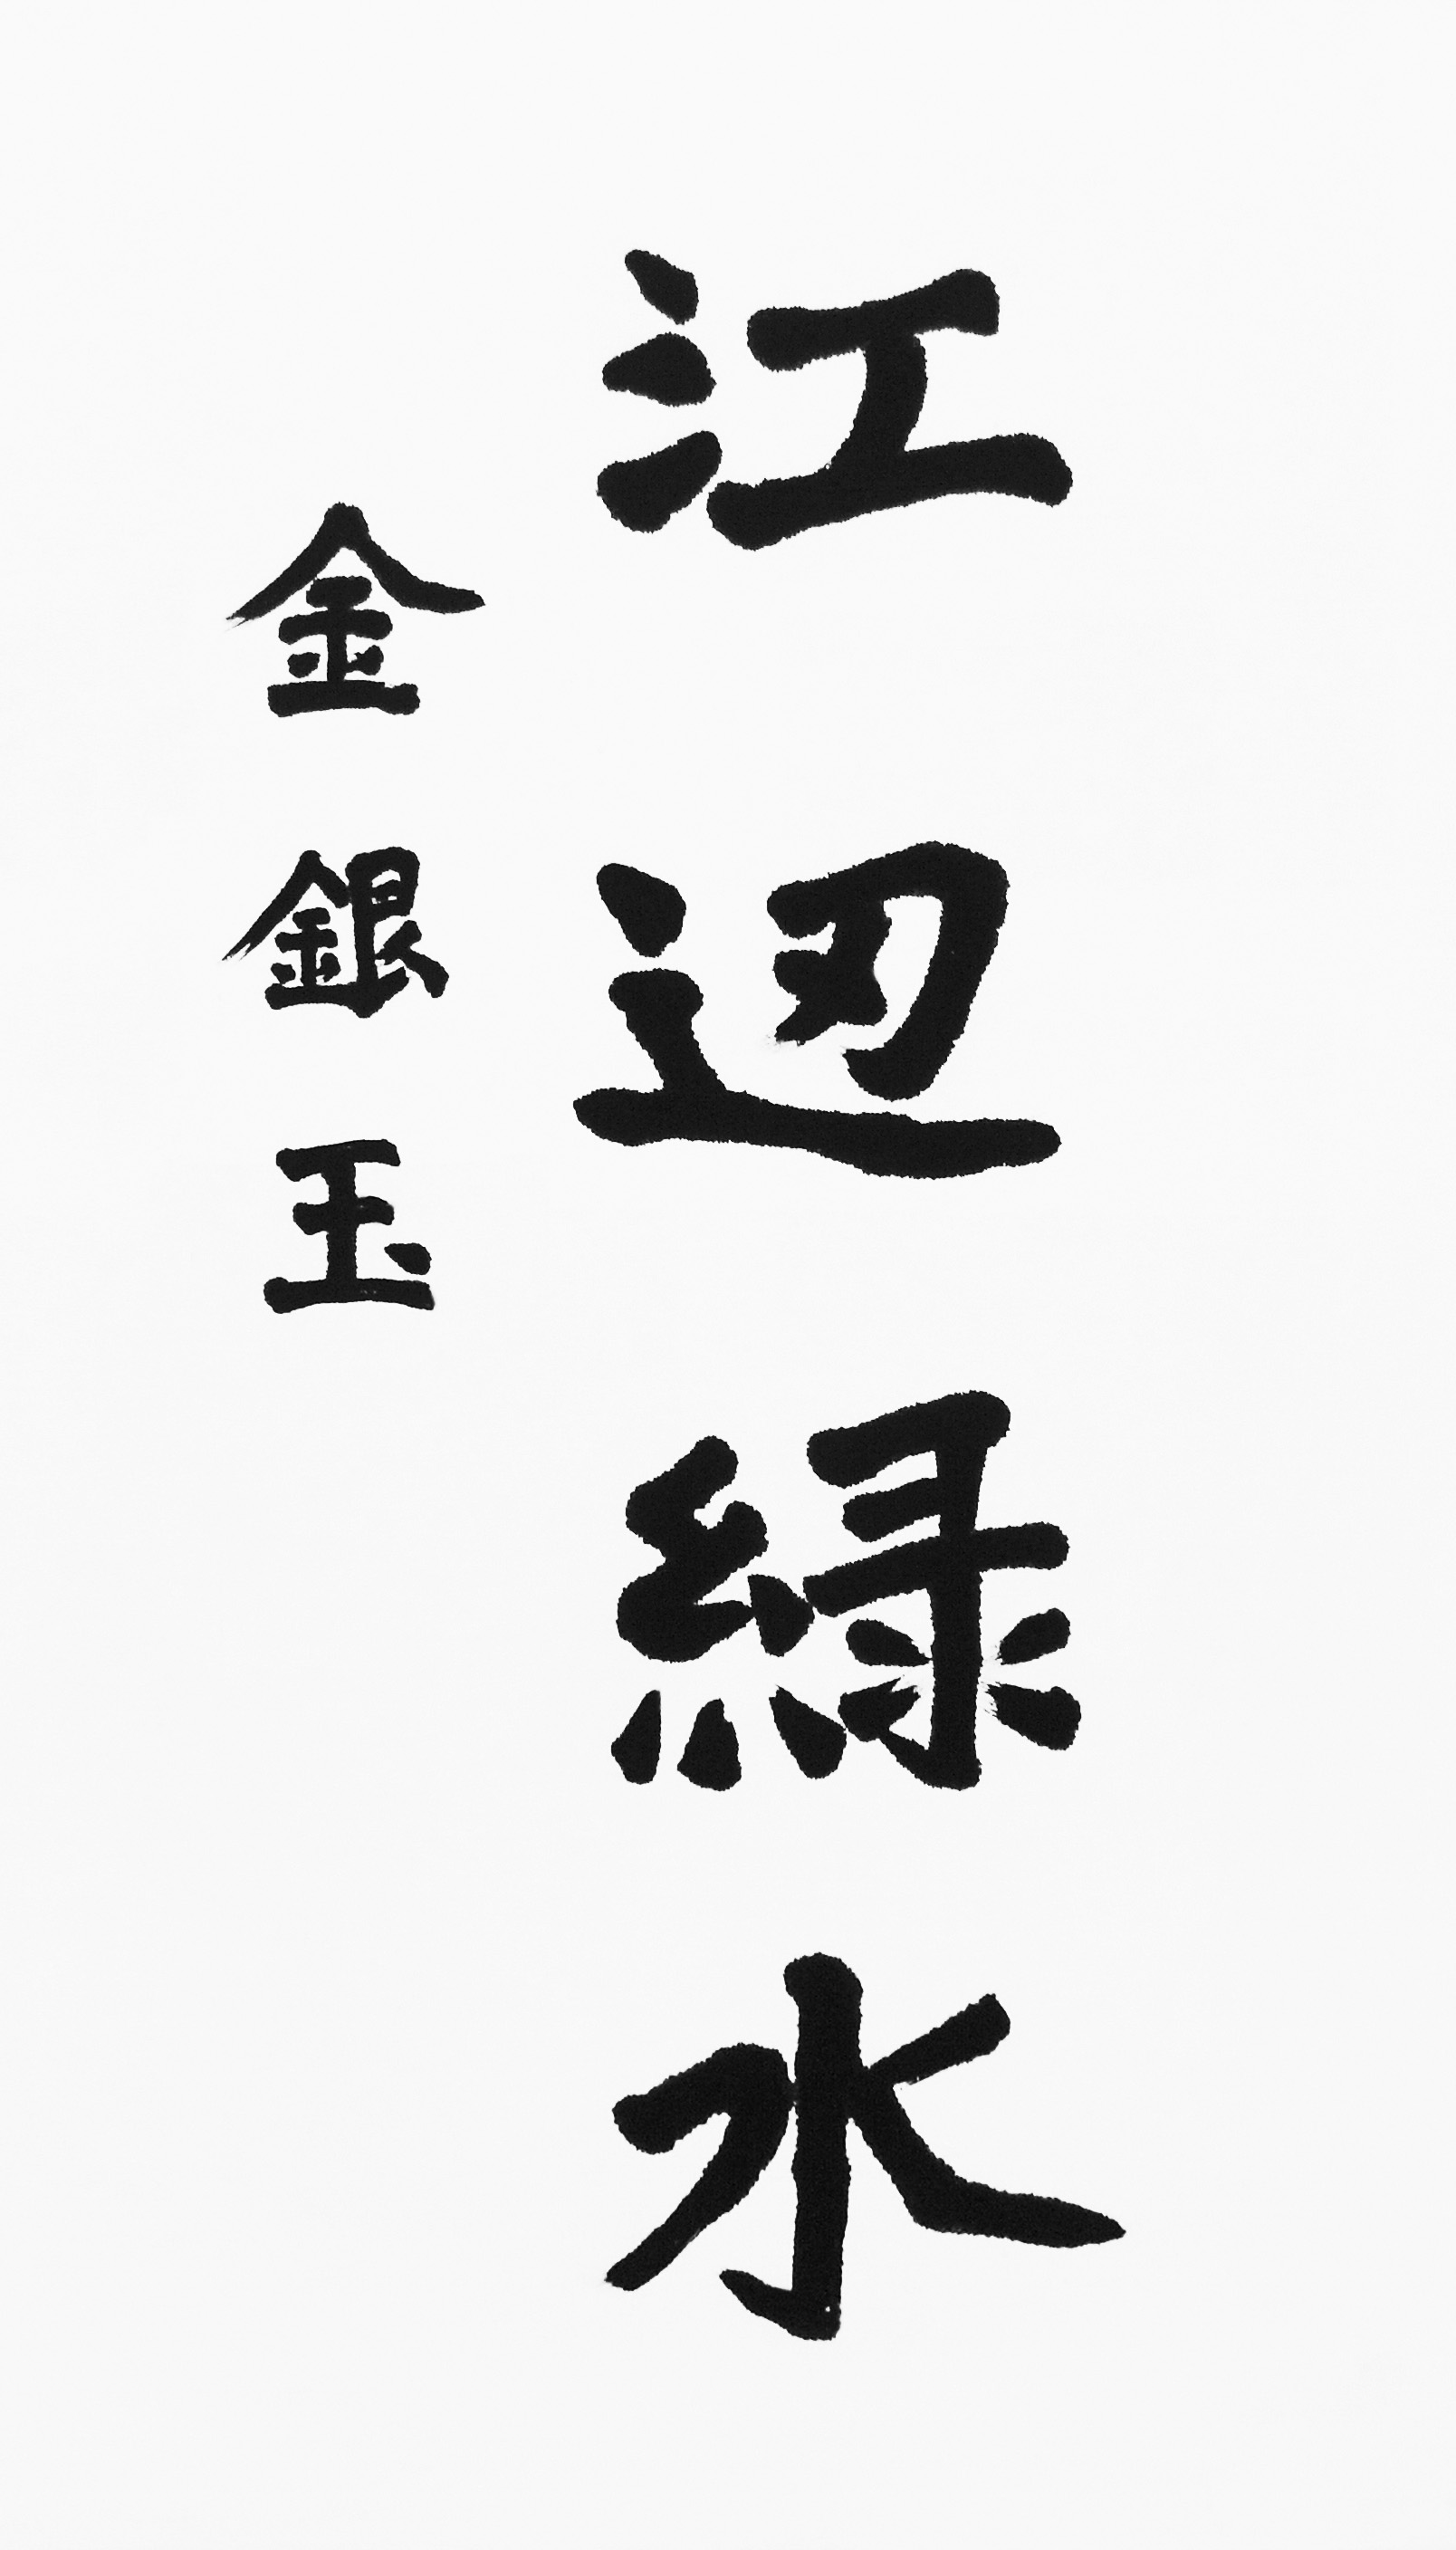 江辺緑水
金銀玉